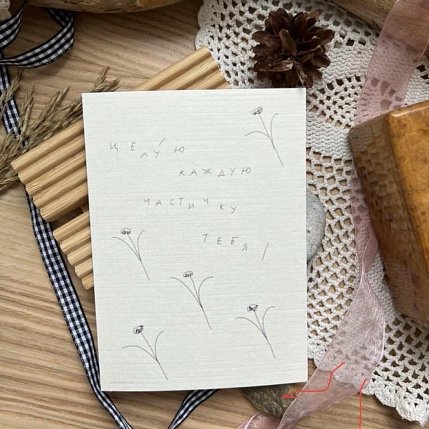 ЦЕЛУЮ
КАЖДУЮ
ЧАСТИЧКУ
ТЕБЯ